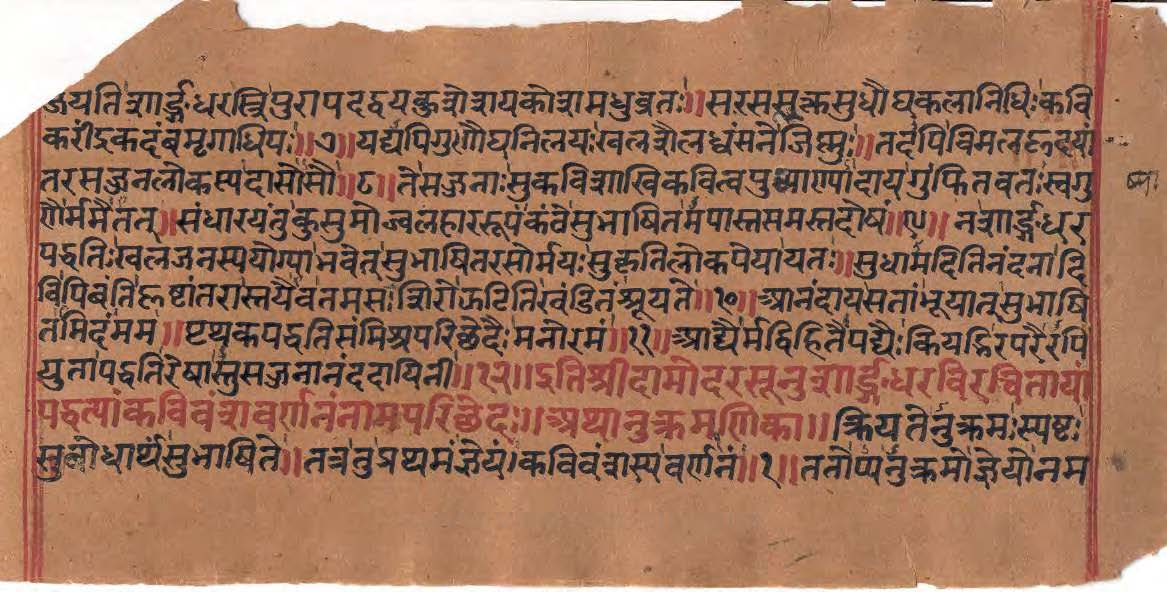 जयतिशार्ङ्गधरस्त्रिपुरापदद्वयकुशेशयकोशमधुव्रतः॥सरससूक्तसुधौघकलानिधिःकवि
करींद्रकदंबमृगाधिपः॥७॥यद्यपिगुणौघनिलयःखलशैलध्वंसनेजिष्णुः॥तदपिविमलहृदया
तरसज्जनलोकस्पदासोसौ॥८॥तेसज्जनाःसुकविशाखिकवित्वपुष्पाण्यादायगुंफितवतःस्वगु
णैर्ममैतत्॥संधारयंतुकुसुमोज्वलहाररूपंकंठेसुभाषितमपास्तसमस्तदोषं॥९॥नशार्ङ्गधर
पद्धतिःखलजनस्ययोग्याभवेत्सुभाषितरसोर्मयःसुकृतिलोकपेयायतः॥सुधामदितिनंदनादि
विपिबंतिहृष्टांतरास्तथैवतमसःशिरोऊटितिखंडितंश्रूयते॥१०॥आनंदायसतांभूयात्सुभाषि
तमिदंमम॥पृथक्पद्धतिसंमिश्रपरिछेदैःमनोरमं॥११॥आद्यैर्मद्विहितैपद्यैःकियद्भिरपरैरपि
युतापद्धतिरेषास्तुसज्जनानंददायिनी॥१२॥इतिश्रीदामोदरसूनुशार्ङ्गधरविरचितायां
पद्धत्यांकविवंशवर्णनंनामपरिछेदः॥अथानुक्रमणिका॥क्रियतेनुक्रमःस्पष्टः
सुबोधार्थंसुभाषिते॥तत्रनुप्रथमंज्ञेयं।कविवंशस्यवर्णनं॥१॥ततोप्यनुक्रमोज्ञेयोनम